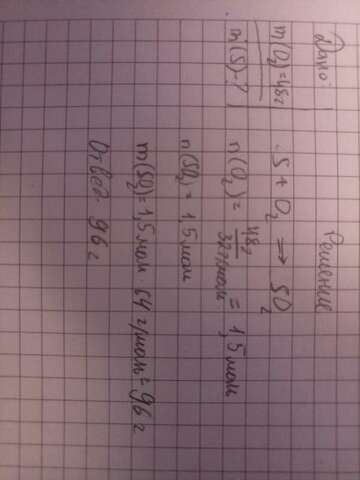 Дано:
m(O₂)=48г
m(S)-?
Решение
S + O₂ → SO₂
n(O₂)= 48г / 32г/моль = 1,5 моль
n(SO₂)= 1,5 моль
m(SO₂)=1,5 моль 64 г/моль= 96 г
Ответ: 96 г